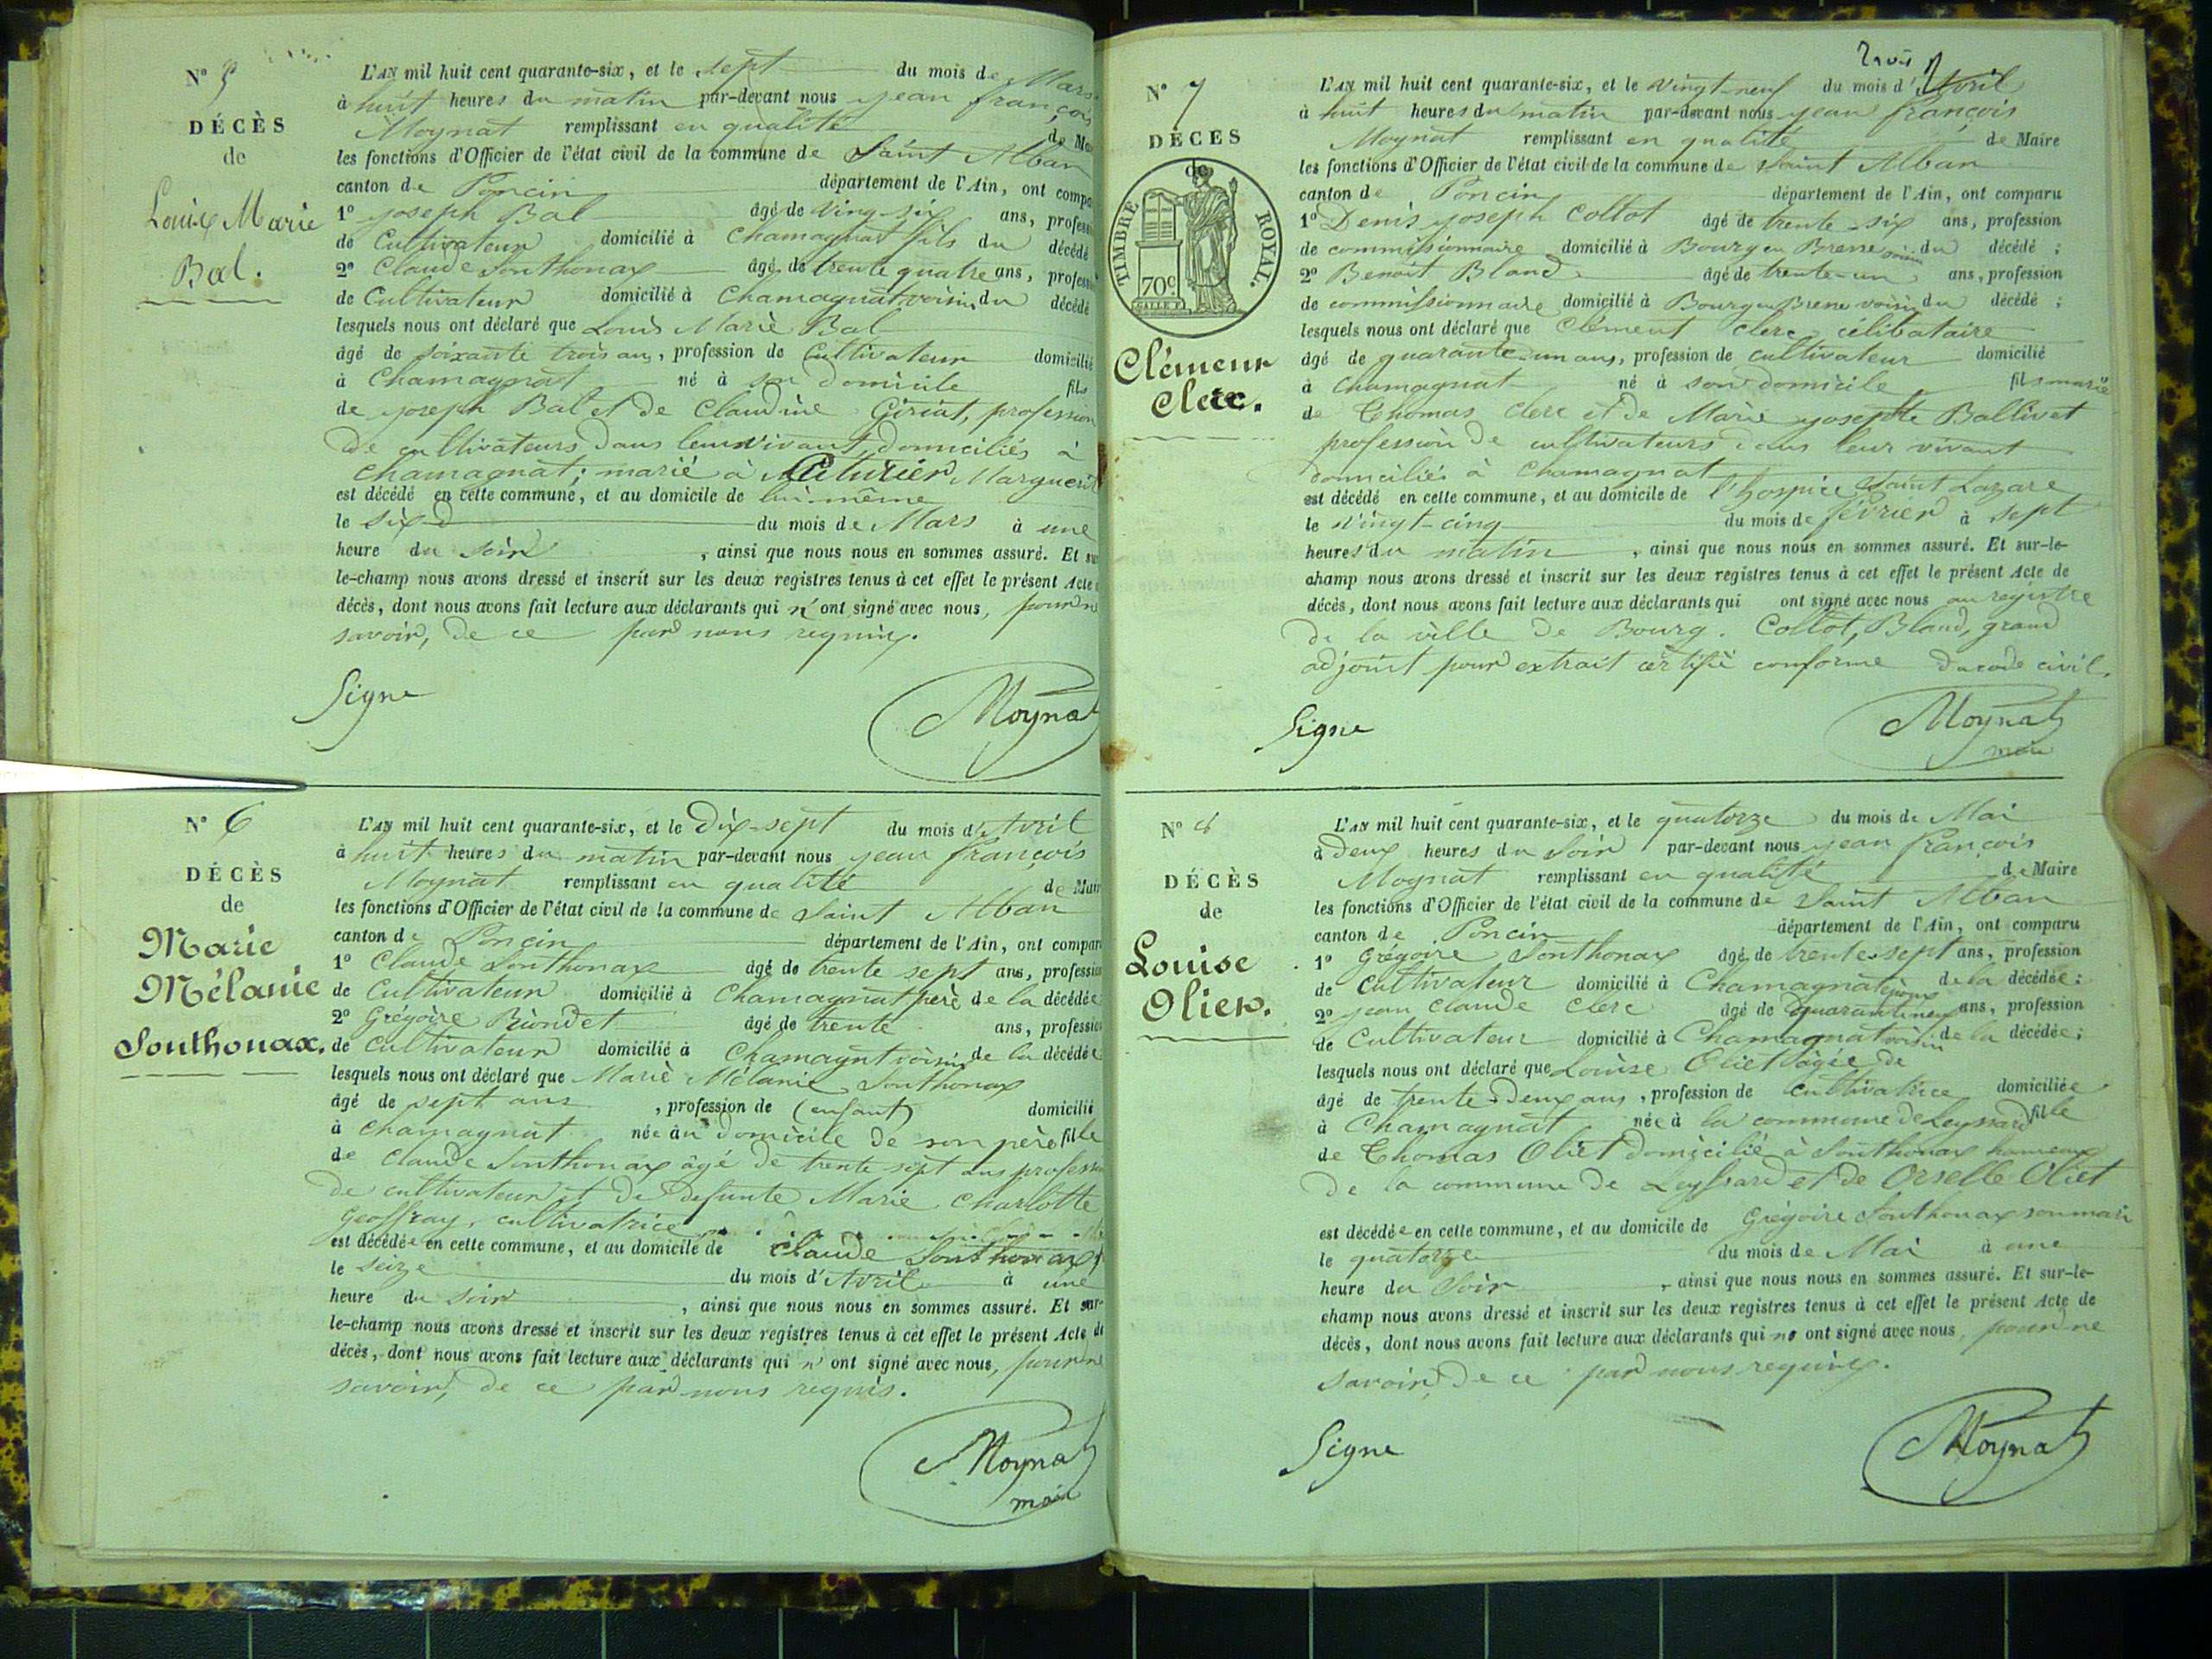 N° 5
DÉCÈS
de
Louis Marie
Bal.
L'AN mil huit cent quarante-six, et le sept du mois de Mars
à huit heures du matin par-devant nous jean françois
Moynat remplissant en qualité de Ma
les fonctions d'Officier de l'état civil de la commune de Saint Alban
canton de Poncin département de l'Ain, ont compa
1° joseph Bal âgé de ving-six ans, profess
de Cultivateur domicilié à Chamagnat fils du décédé
2° Claude Sonthonax âgé de trente quatre ans, professi
de Cultivateur domicilié à Chamagnat voisin du décédé
lesquels nous ont déclaré que Louis Marie Bal
âgé de soixante trois ans, profession de Cultivateur domicilié
à Chamagnat né à son domicile fils
de joseph Bal et de Claudine Giriat, profession
de cultivateurs dans leur vivant, domiciliés à
Chamagnat; marié à Marguerit
est décédé en cette commune, et au domicile de lui-même
le six du mois de Mars à une
heure du soir, ainsi que nous nous en sommes assuré. Et su
le-champ nous avons dressé et inscrit sur les deux registres tenus à cet effet le présent Acte
décès, dont nous avons fait lecture aux déclarants qui n'ont signé avec nous, pour ne
savoir, de ce par nous requis.
Signe
Moynat
N° 6
DÉCÈS
de
Marie
Mélanie
Sonthonax.
L'AN mil huit cent quarante-six, et le Dix-sept du mois d'Avril
à huit heures du matin par-devant nous jean françois
Moynat remplissant en qualité de Mair
les fonctions d'Officier de l'état civil de la commune de Saint Alban
canton de Poncin département de l'Ain, ont compar
1° Claude Sonthonax âgé de trente sept ans, professio
de Cultivateur domicilié à Chamagnat père de la décédée
2° Grégoire Riondet âgé de trente ans, professio
de cultivateur domicilié à Chamagnt voisin de la décédée
lesquels nous ont déclaré que Marie Mélanie Sonthonax
âgé de sept ans, profession de (enfant) domicilié
à Chamagnat née au domicile de son père fille
de Claude Sonthonax âgé de trente sept ans profession
de cultivateur et de defunte Marie Charlotte
Geoffray, cultivatrice
est décédée en cette commune, et au domicile de Claude Sonthonax
le seize du mois d'Avril à une
heure du soir, ainsi que nous nous en sommes assuré. Et sur-
le-champ nous avons dressé et inscrit sur les deux registres tenus à cet effet le présent Acte de
décès, dont nous avons fait lecture aux déclarants qui n'ont signé avec nous, pour ne
savoir, de ce par nous requis.
Moynat
maire
N° 7
DÉCÈS
de
TIMBRE ROYAL.
70c
Clément
Clerc.
L'AN mil huit cent quarante-six, et le vingt-neuf du mois d'Avril
à huit heures du matin par-devant nous jean françois
Moynat remplissant en qualité de Maire
les fonctions d'Officier de l'état civil de la commune de Saint Alban
canton de Poncin département de l'Ain, ont comparu
1° Denis joseph Collot âgé de trente-six ans, profession
de commissionnaire domicilié à Bourg en Bresse voisin du décédé;
2° Benoit Bland âgé de trente-un ans, profession
de commissionnaire domicilié à Bourg en Bresse voisin du décédé;
lesquels nous ont déclaré que Clément Clerc célibataire
âgé de quarante-un ans, profession de cultivateur domicilié
à Chamagnat né à son domicile fils
de Thomas Clerc et de Marie josephte Ballivet
profession de cultivateurs dans leur vivant
domiciliés à Chamagnat
est décédé en cette commune, et au domicile de l'hospice Saint Lazare
le vingt-cinq du mois de février à sept
heures du matin, ainsi que nous nous en sommes assuré. Et sur-le-
champ nous avons dressé et inscrit sur les deux registres tenus à cet effet le présent Acte de
décès, dont nous avons fait lecture aux déclarants qui ont signé avec nous au registre
de la ville de Bourg. Collot, Bland, grand
adjoint pour extrait certifié conforme du code civil.
Signe
Moynat
maire
N° 8
DÉCÈS
de
Louise
Oliet.
L'AN mil huit cent quarante-six, et le quatorze du mois de Mai
à deux heures du Soir par-devant nous jean françois
Moynat remplissant en qualité de Maire
les fonctions d'Officier de l'état civil de la commune de Saint Alban
canton de Poncin département de l'Ain, ont comparu
1° Grégoire Sonthonax âgé de trente-sept ans, profession
de Cultivateur domicilié à Chamagnat époux de la décédée;
2° jean Claude Clerc âgé de quarante neuf ans, profession
de Cultivateur domicilié à Chamagnat voisin de la décédée;
lesquels nous ont déclaré que Louise Oliet âgée de
âgé de trente-deux ans, profession de Cultivatrice domiciliée
à Chamagnat née à la commune de Leyssard fille
de Thomas Oliet domicilié à Sonthonax hameau
de la commune de Leyssard et de Orselle Oliet
est décédée en cette commune, et au domicile de Grégoire Sonthonax son mari
le quatorze du mois de Mai à une
heure du Soir, ainsi que nous nous en sommes assuré. Et sur-le-
champ nous avons dressé et inscrit sur les deux registres tenus à cet effet le présent Acte de
décès, dont nous avons fait lecture aux déclarants qui ne ont signé avec nous, pour ne
savoir, de ce par nous requis.
Signe
Moynat